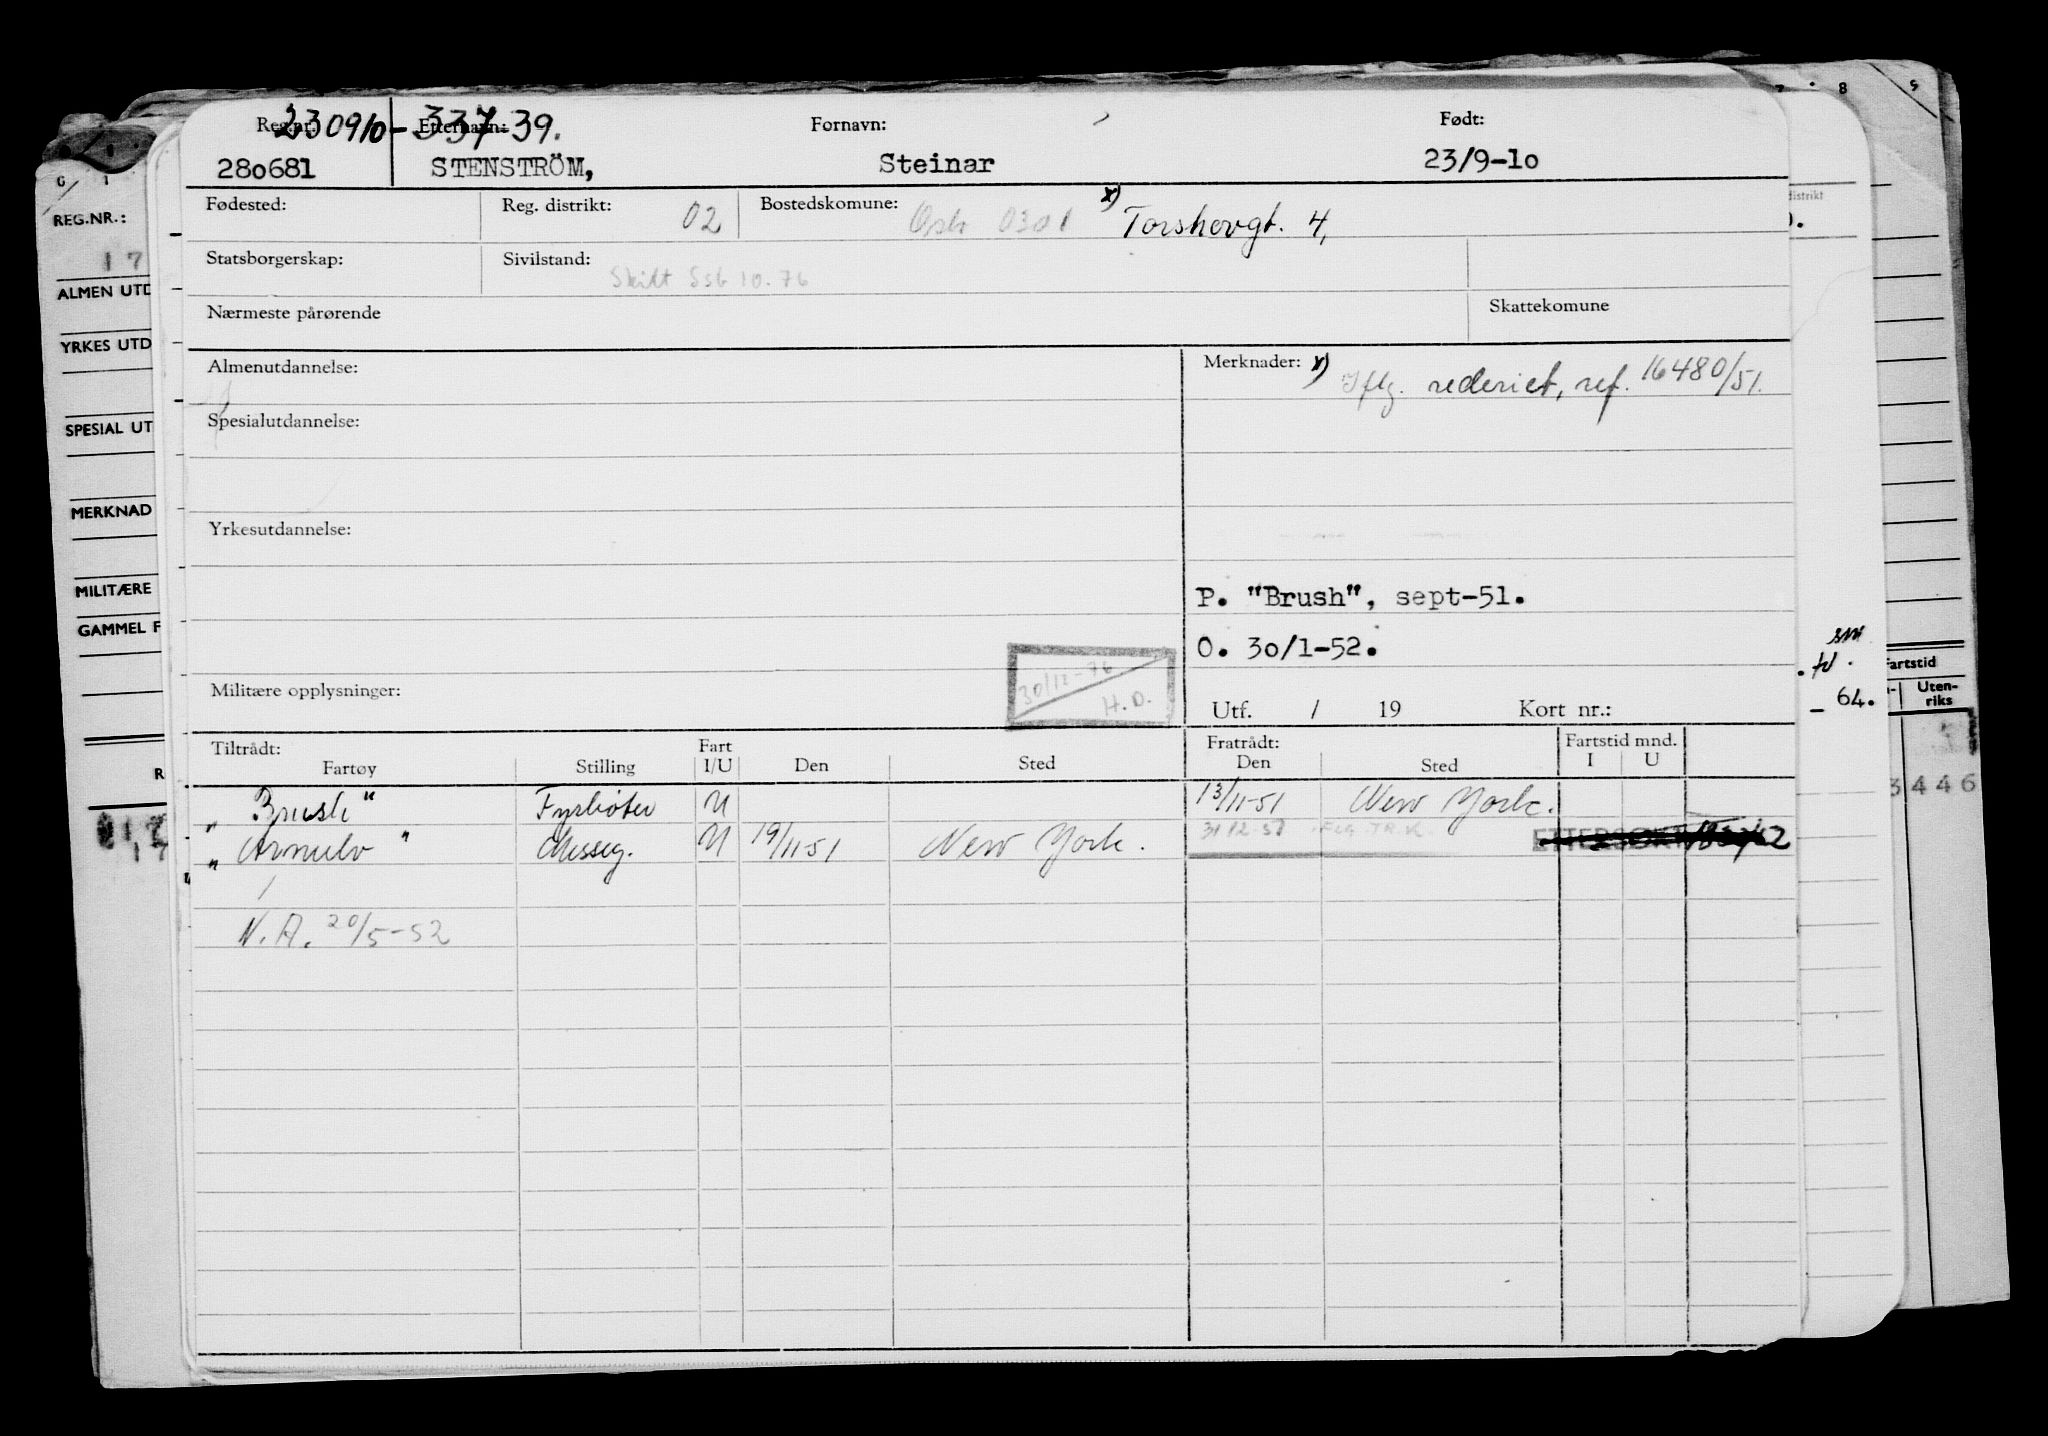 230910-33739.
Reg.nr. Etternavn: Fornavn: Født:
280681 STENSTRÖM, Steinar 23/9-10
Fødested: Reg. distrikt: 02 Bostedskomune: Oslo 0301 x) Torshovgt. 4,
Statsborgerskap: Sivilstand: Skilt Ssb 10.76
Nærmeste pårørende Skattekomune
Almenutdannelse: Merknader: x) Iflg. rederiet, ref. 16480/51.
Spesialutdannelse:
Yrkesutdannelse:
P. "Brush", sept-51.
O. 30/1-52.
30/12-76 H.D.
Militære opplysninger: Utf. / 19 Kort nr.:
Tiltrådt: Fart Fratrådt: Fartstid mnd.
Fartøy Stilling I/U Den Sted Den Sted I U
"Brush" Fyrbøter U 13/11-51 New York.
"Arnulv" Messeg. U 19/11 51 New York. 31/12-51
N.A. 20/5-52
REG.NR.:
17
ALMEN UTD
YRKES UTD
SPESIAL UT
MERKNAD
MILITÆRE
GAMMEL F
8
distrikt
64.
Fartstid
Uten-
riks
3446